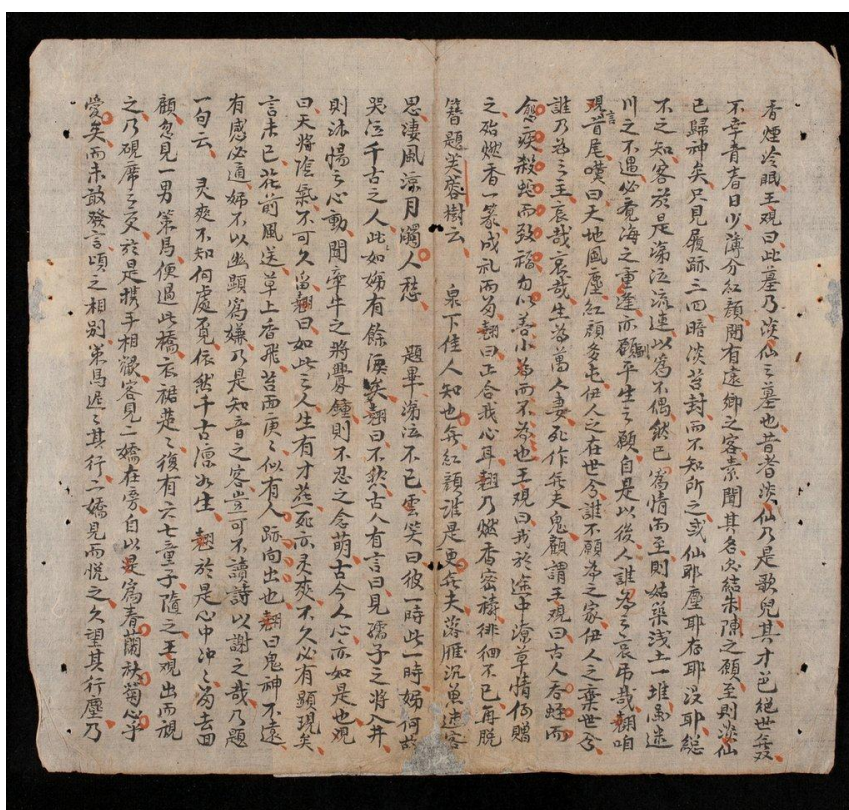 香煙冷眼王观曰此墓乃淡仙之墓也昔者淡仙乃是歌兒其才色絕世無双
不幸青春日少薄分紅顔閉有遠鄉之客素聞其名欠結朱陳之願至則淡仙
已歸神矣只見履跡三四暗淡苔封而不知所之或仙耶塵耶存耶没耶総
不之知客於是涕泣流連以為不偶然已為情而至則姑築浅土一堆
川之不遇必竟海之重逢亦酬平生之願自是以後人誰為之哀吊哉翹咱
观言首尾嘆曰天地風塵紅顔多屯伊人之在世兮誰不願為之家伊人之棄世兮
誰乃為之主哀哉哀哉生為萬人妻死作無夫鬼顧謂王观曰古人吞蛭而
愈疾殺蛇而致福勿以善小為而不為也王观曰我於途中潦草情何贈
之殆燃香一篆成礼而為翹曰正合我心耳翹乃燃香密禱徘徊不已再脱
簪題芙蓉樹云　泉下佳人知也無紅顔誰是更無夫落雁沉魚迷客
思凄風涼月觸人愁　題畢涕泣不已雲笑曰彼一時此一時姊何故
哭泣千古之人此如姊有餘淚矣翹曰不欤古人有言曰見孺子之將入井
則怵惕之心動聞牽牛之將釁鐘則不忍之念萌古今人心亦如是也观
曰天將陰氣不可久留翹曰如此之人生有才花死亦灵爽不久必有顕現矣
言未已花前風送草上香飛苔西庚々似有人跡向出也翹曰鬼神不遠
有感必通姊不以幽顕為嫌乃是知音之客豈可不讀詩以謝之哉乃題
一句云　灵爽不知何處覓依然千古凛如生　翹於是心中冲々為去回
顧忽見一男策馬便過此橋衣裾楚々復有六七童子隨之王观出而視
之乃硯席之交於是携手相歡客見二嬌在旁自以是為春蘭秋菊心乎
愛矣而未敢發言頃之相別策馬遲々其行二嬌見而悦之久望其行塵乃